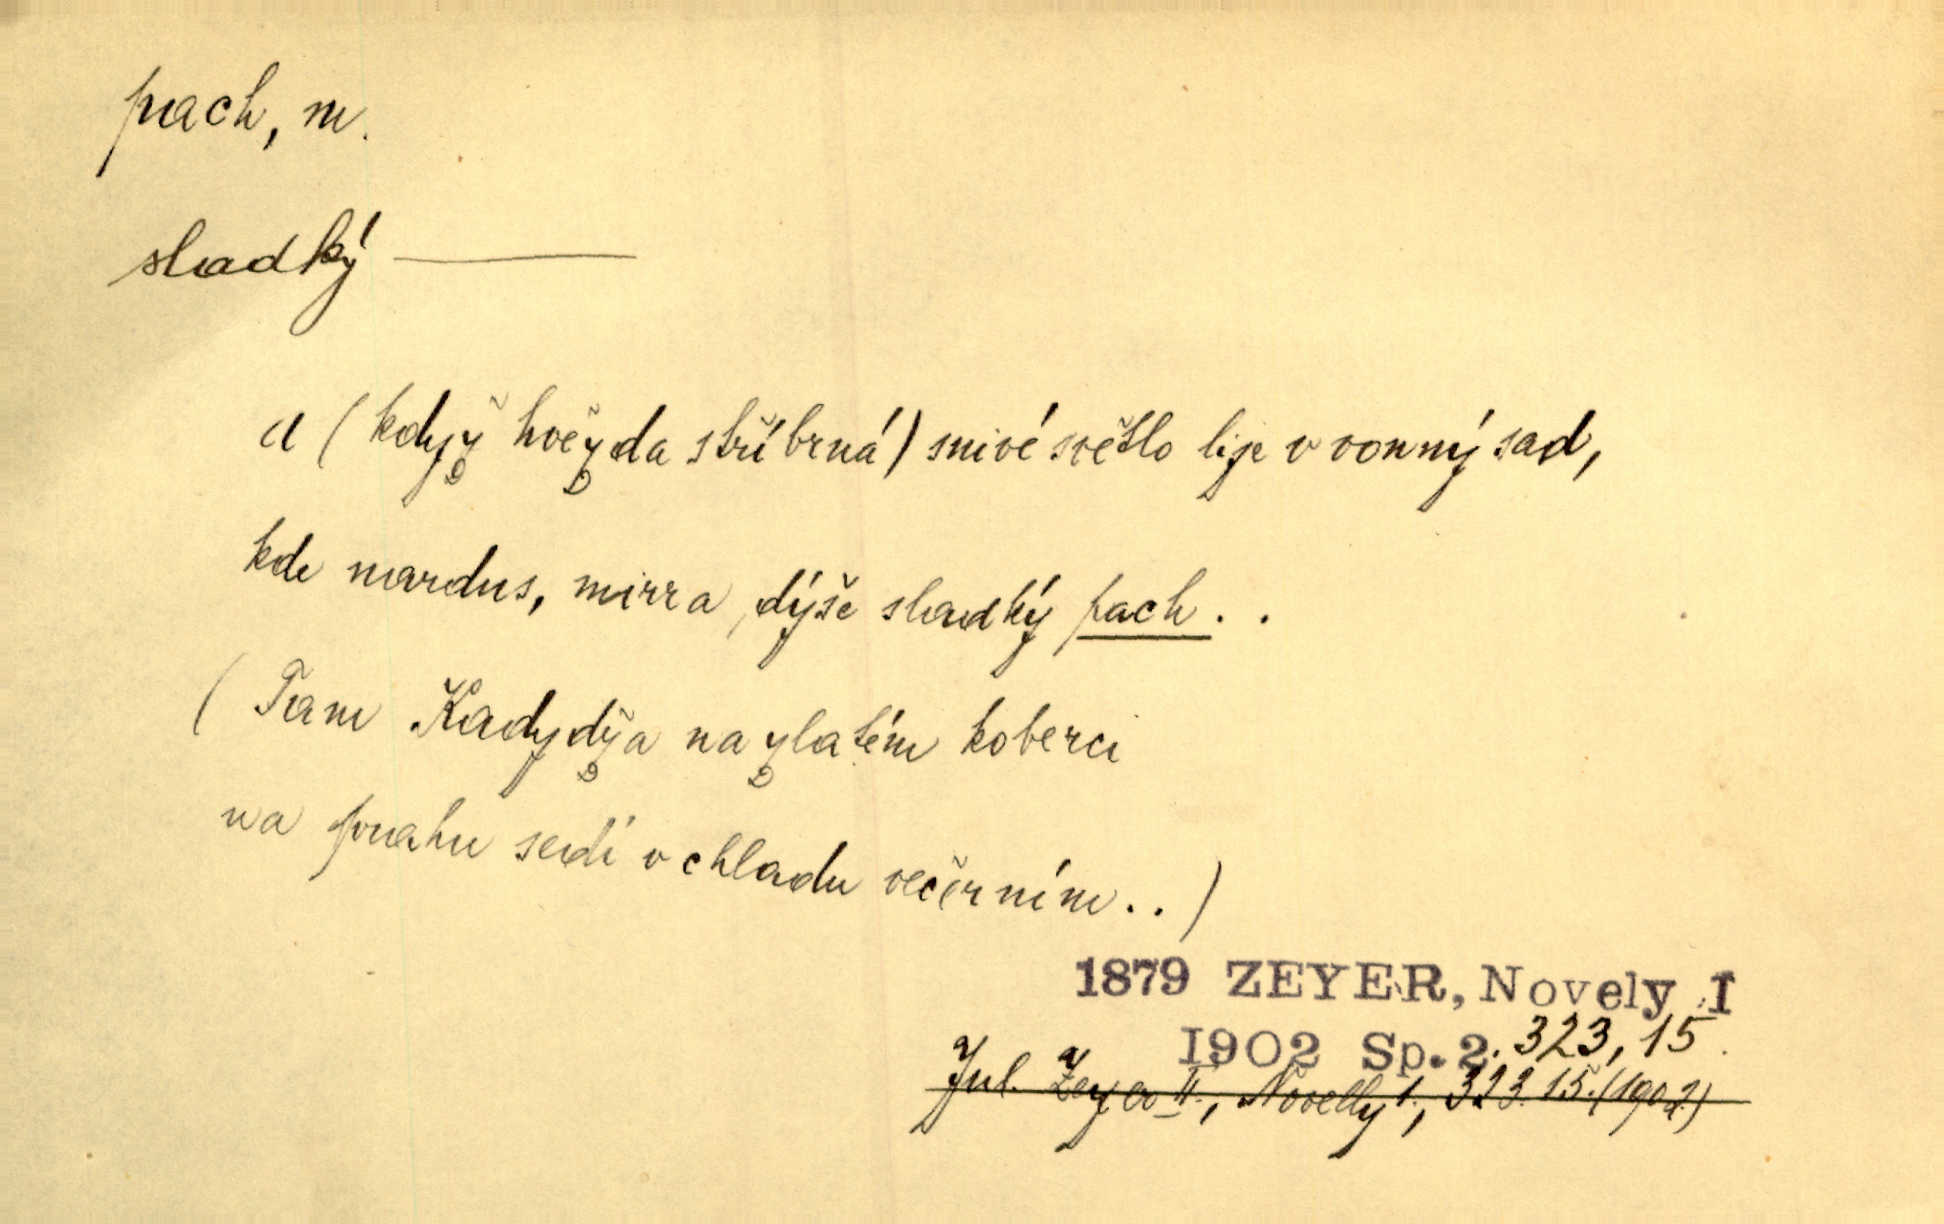 pach, m.
sladký —
a (když hvězda stříbrná) snivé světlo lije v vonný sad,
kde nardus, mirra, dýše sladký pach . .
(Tam Kadydža na zlatém koberci
na prahu sedí v chladu večerním . . )
1879 ZEYER, Novely I
1902 Sp. 2. 323, 15.
Jul. Zeyer II., Novelly I., 323 15. (1902)